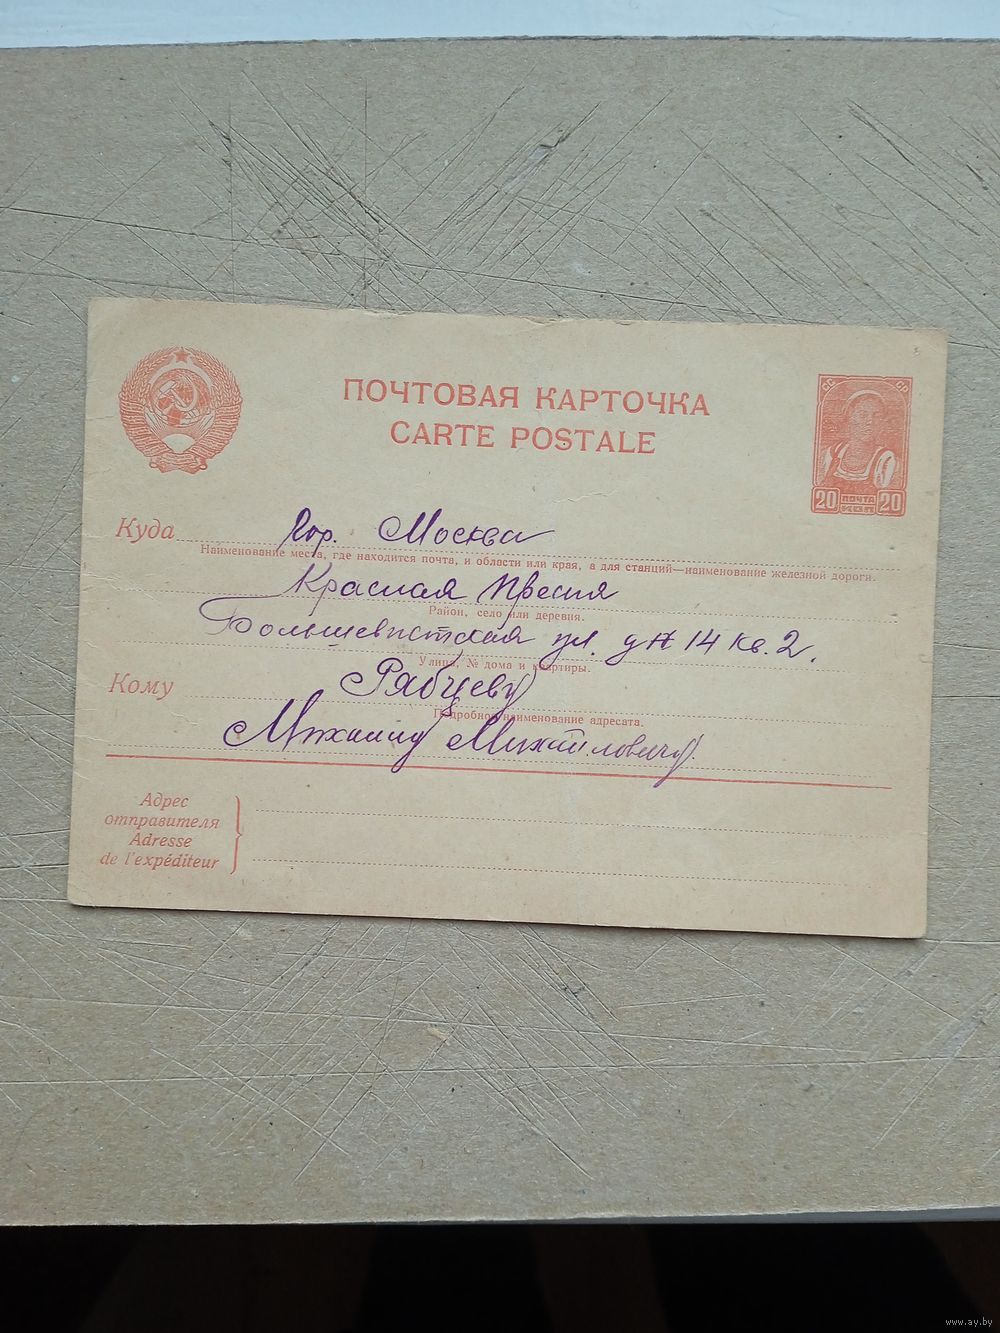 ПОЧТОВАЯ КАРТОЧКА
CARTE POSTALE
СС СР
20 ПОЧТА КОП 20
Куда Гор. Москва
Наименование места, где находится почта, и области или края, а для станций—наименование железной дороги.
Красная Пресня
Район, село или деревня.
Большевистская ул. д № 14 кв. 2.
Улица, № дома и квартиры.
Кому Рябцеву
Подробное наименование адресата.
Михаилу Михайловичу.
Адрес
отправителя
Adresse
de l'expéditeur
www.ay.by